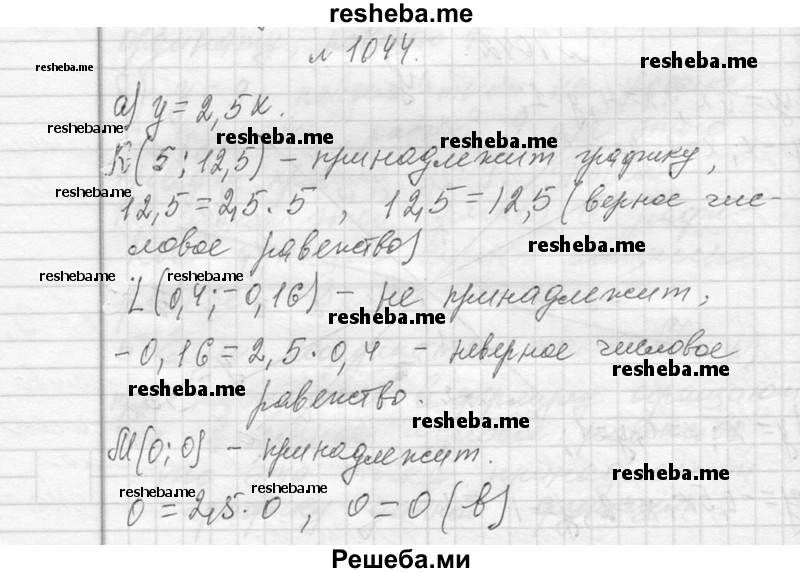 resheba.me
№ 1044.
resheba.me
resheba.me
а) y = 2,5x.
resheba.me
resheba.me
resheba.me
K(5; 12,5) – принадлежит графику,
resheba.me
12,5 = 2,5 · 5 , 12,5 = 12,5 (верное чис-
ловое равенство)
resheba.me
resheba.me
resheba.me
L(0,4; -0,16) – не принадлежит,
resheba.me
-0,16 = 2,5 · 0,4 – неверное числовое
resheba.me
resheba.me
равенство.
resheba.me
M(0; 0) – принадлежит.
resheba.me
resheba.me
resheba.me
0 = 2,5 · 0 , 0 = 0 (в)
Решеба.ми